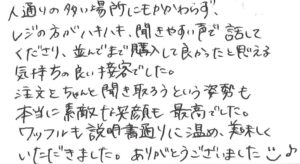 人通りの多い場所にもかかわらず、
レジの方がハキハキ、聞きやすい声で話して
くださり、並んでまで購入して良かったと思える
気持ちの良い接客でした。
注文をちゃんと聞き取ろうという姿勢も
本当に素敵な笑顔も最高でした。
ワッフルも説明書通りに温め、美味しく
いただきました。ありがとうございました☺♪